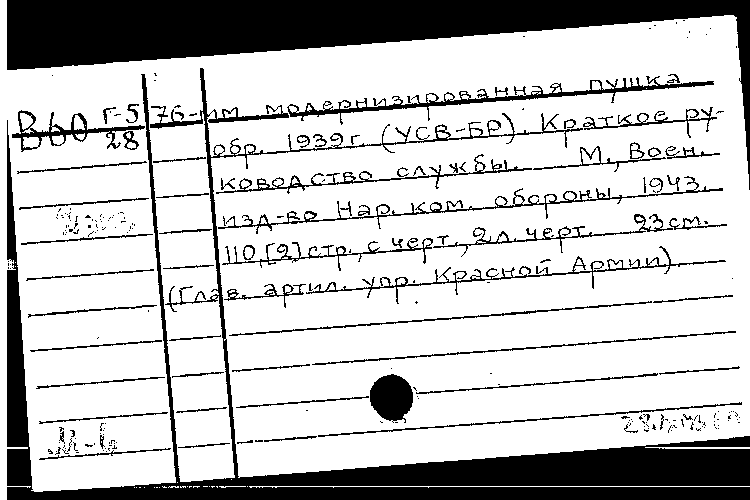 В60 Г-5/28 76-мм модернизированная пушка
обр. 1939г. (УСВ-БР). Краткое ру-
ководство службы. М., Воен.
изд-во Нар. ком. обороны, 1943.
110,[2] стр., с черт., 2 л. черт. 23 см.
(Глав. артил. упр. Красной Армии).